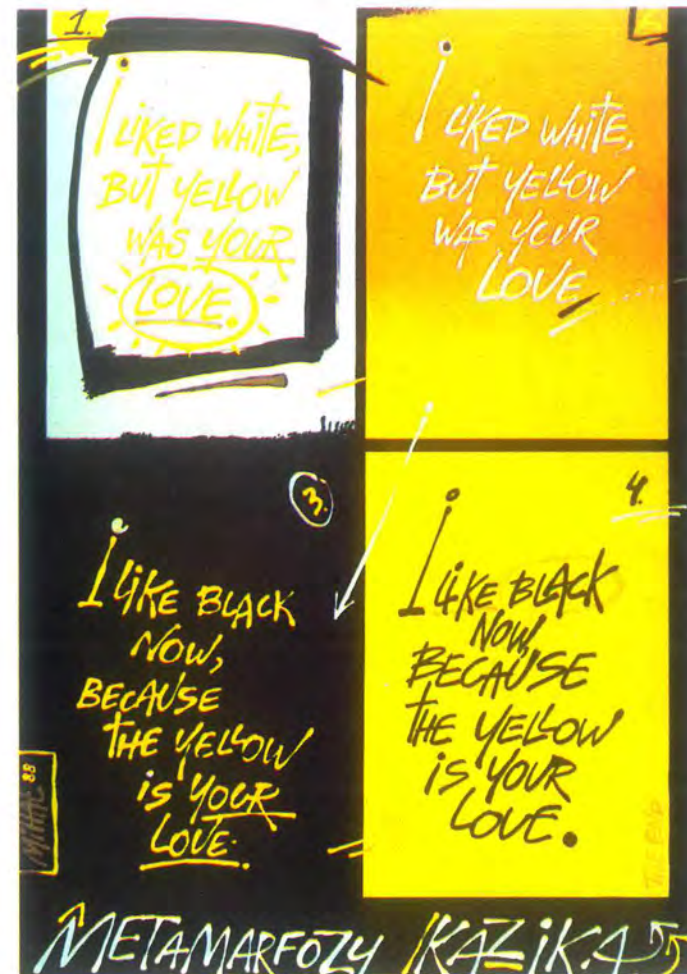 1.
I LIKED WHITE,
BUT YELLOW
WAS YOUR
LOVE.
I LIKED WHITE,
BUT YELLOW
WAS YOUR
LOVE
3.
I LIKE BLACK
NOW,
BECAUSE
THE YELLOW
IS YOUR
LOVE.
4.
I LIKE BLACK
NOW,
BECAUSE
THE YELLOW
IS YOUR
LOVE.
THE END
88
METAMARFOZY KAZIKA